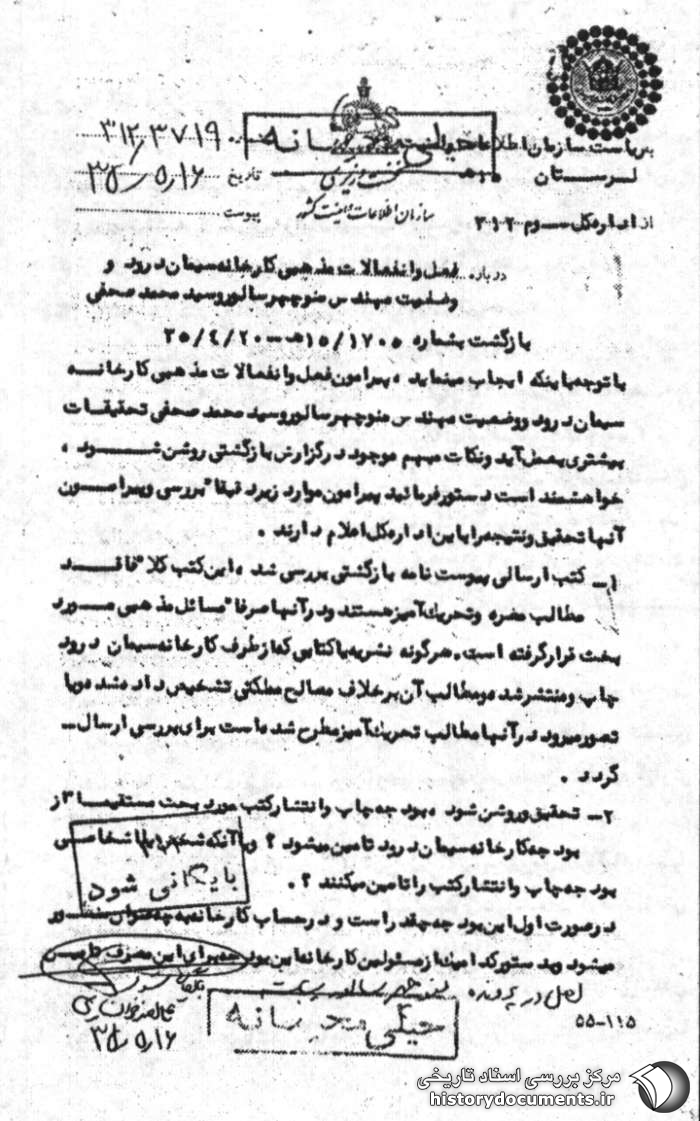 خیلی محرمانه
۳۱۲/۳۷۱۹
بریاست سازمان اطلاعات
نخست وزیری
تاریخ ۳۵/۵/۱۶
لرستان ۱۵ھ
سازمان اطلاعات و امنیت کشور
پیوست
از اداره کل سوم ۳۱۲
درباره فعل و انفعالات مذهبی کارخانه سیمان درود و
وضعیت مهندس منوچهر سالور و سید محمد صحفی
بازگشت بشماره ۱۵/۱۷۰۵ھ - ۳۵/۴/۲۰
با توجه باینکه ایجاب مینماید ، پیرامون فعل و انفعالات مذهبی کارخانه
سیمان درود و وضعیت مهندس منوچهر سالور و سید محمد صحفی تحقیقات
بیشتری بعمل آید و نکات مبهم موجود در گزارش بازگشتی روشن شود ،
خواهشمند است دستور فرمائید پیرامون موارد زیر دقیقا" بررسی و پیرامون
آنها تحقیق و نتیجه را باین اداره کل اعلام دارند .
۱- کتب ارسالی پیوست نامه بازگشتی بررسی شد ، این کتب کلا" فاقد
مطالب مضره و تحریک آمیز هستند و در آنها صرفا" مسائل مذهبی مورد
بحث قرار گرفته است . هرگونه نشریه یا کتابی که از طرف کارخانه سیمان درود
چاپ و منتشر شده و مطالب آن بر خلاف مصالح مملکتی تشخیص داده شده و یا
تصور میرود در آنها مطالب تحریک آمیز مطرح شده است برای بررسی ارسال
گردد .
۲- تحقیق و روشن شود ، بودجه چاپ و انتشار کتب مورد بحث مستقیما" از
بودجه کارخانه سیمان درود تامین میشود ؟ و یا آنکه شخص یا اشخاصی
بودجه چاپ و انتشار کتب را تامین میکنند ؟ .
بایگانی شود
در صورت اول این بودجه چقدر است و در حساب کارخانه به چه عنوان منظور
میشود و بدستور کدامیک از مسئولین کارخانه این بودجه برای این مصرف تامین
اصل در پرونده
خیلی محرمانه
۳۵/۵/۱۶
۵۵-۱۱۵
مرکز بررسی اسناد تاریخی
historydocuments.ir